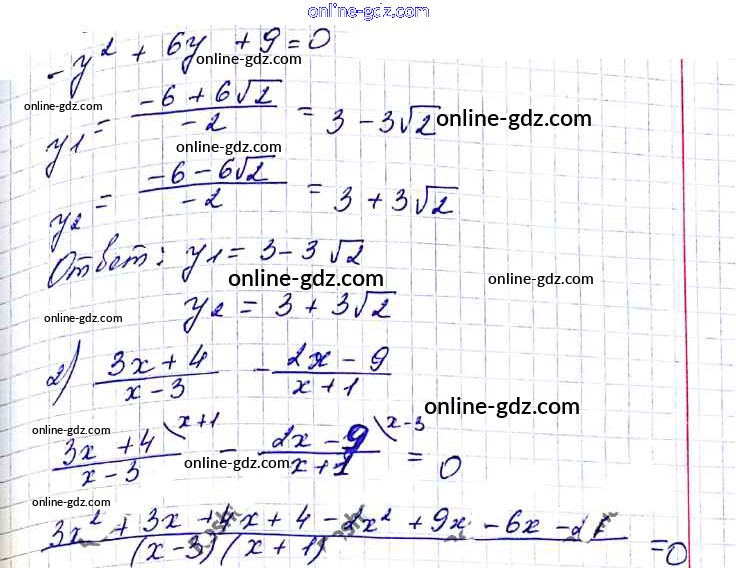 online-gdz.com
-y² + 6y + 9 = 0
online-gdz.com
online-gdz.com
y1 = (-6 + 6√2)/(-2) = 3 - 3√2
online-gdz.com
online-gdz.com
y2 = (-6 - 6√2)/(-2) = 3 + 3√2
online-gdz.com
Ответ: y1 = 3 - 3√2
online-gdz.com
online-gdz.com
y2 = 3 + 3√2
online-gdz.com
2) (3x + 4)/(x - 3) - (2x - 9)/(x + 1)
online-gdz.com
online-gdz.com
(3x + 4)/(x - 3) \x+1 - (2x - 9)/(x + 1) \x-3 = 0
online-gdz.com
online-gdz.com
(3x² + 3x + 4x + 4 - 2x² + 9x - 6x - 2)/((x - 3)(x + 1)) = 0